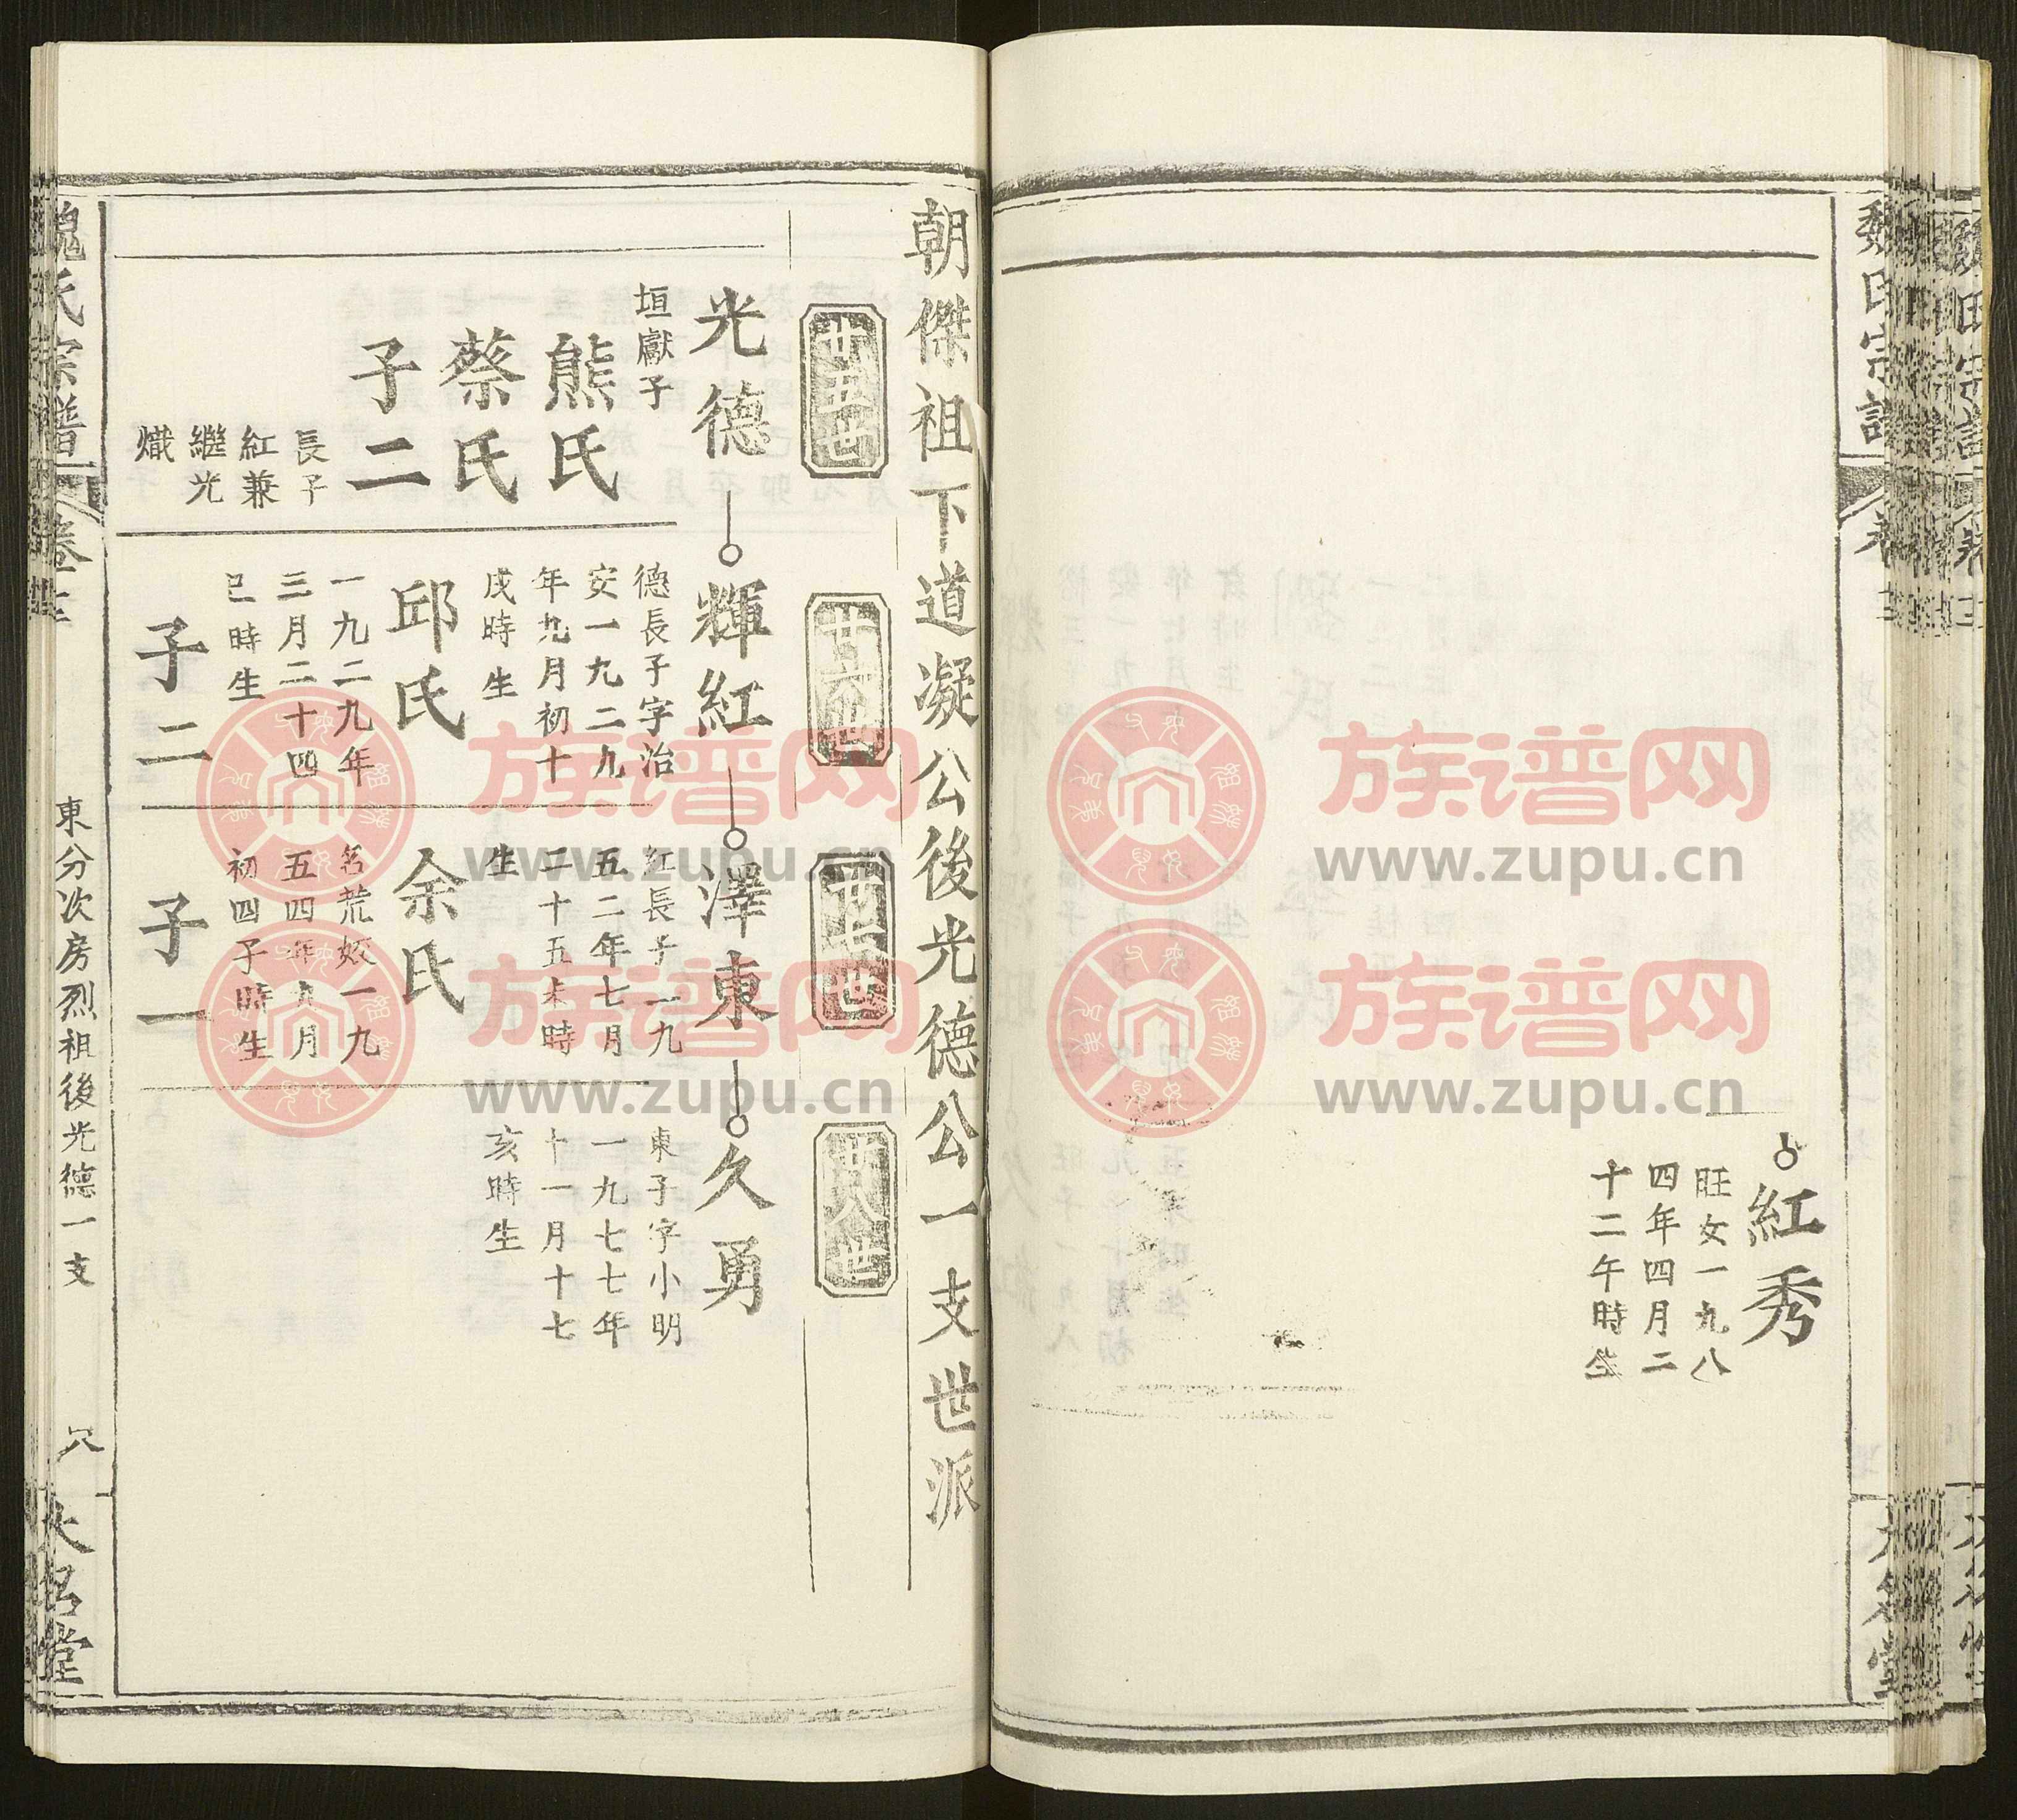 魏氏宗譜
大名堂
紅秀
旺女一九八
四年四月二
十二午時生
朝傑祖下道凝公後光德公一支世派
廿五世
廿六世
廿七世
廿八世
光德
垣獻子
熊氏
蔡氏
子二
長子
紅兼
繼光
熾
輝紅
德長子字治
安一九二九
年九月初十
戌時生
邱氏
一九二九年
三月二十四
巳時生
子二
澤東
紅長子一九
五二年七月
二十五未時
生
余氏
名荒姣一九
五四年九月
初四子時生
子一
久勇
東子字小明
一九七七年
十一月十七
亥時生
魏氏宗譜
東分次房烈祖後光德一支
大名堂
族谱网
www.zupu.cn
族谱网
www.zupu.cn
族谱网
www.zupu.cn
族谱网
www.zupu.cn